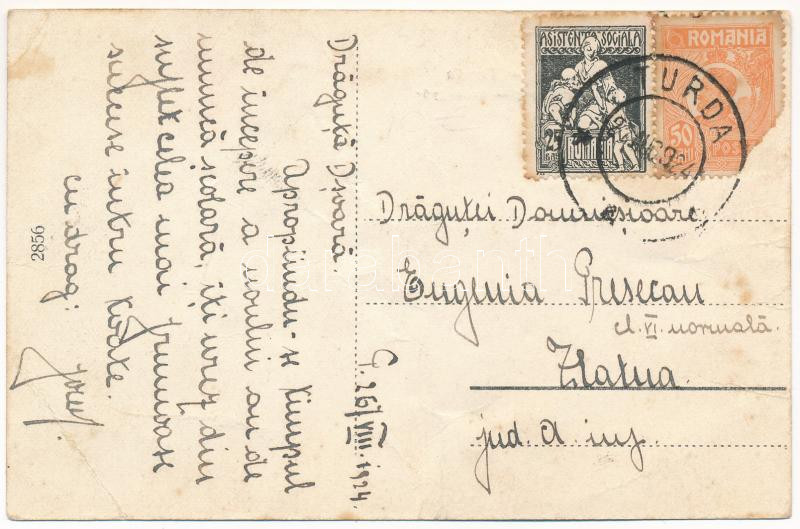 Drăguță Dșoară
Apropiindu-se timpul
de începere a noului an de
muncă școlară, iți urez din
suflet celea mai frumoase
succese întru toate.
cu drag:
T. 26/VIII.1924.
2856
ASISTENȚA SOCIALA
25
ROMÂNIA
ROMANIA
50
TURDA
Drăguței Domnișioare:
Eugenia Presecan
cl. VI normală.
Zlatna
jud. A. inf.
darabanth